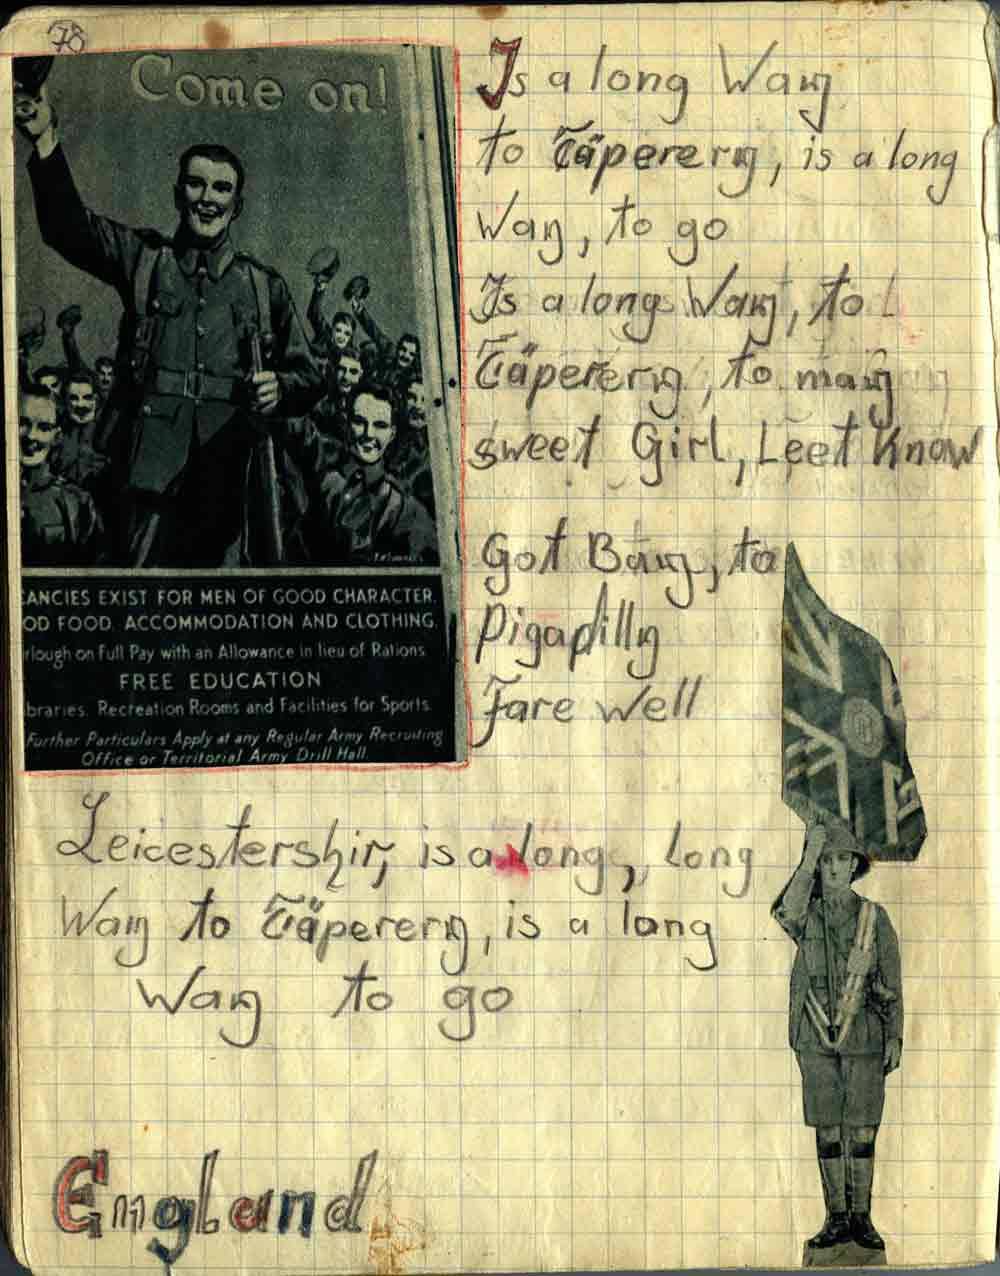 78
Come on!
ANCIES EXIST FOR MEN OF GOOD CHARACTER.
OD FOOD. ACCOMMODATION AND CLOTHING.
rlough on Full Pay with an Allowance in lieu of Rations.
FREE EDUCATION
braries. Recreation Rooms and Facilities for Sports.
Further Particulars Apply at any Regular Army Recruiting
Office or Territorial Army Drill Hall.
Is a long Way
to Täperery, is a long
Way, to go
Is a long Way, to
Täperery, to may
sweet Girl, Leet Know
Got Bay, to
Pigadilly
Fare Well
Leicestershir, is a long, long
Way to Täperery, is a long
Way to go
England